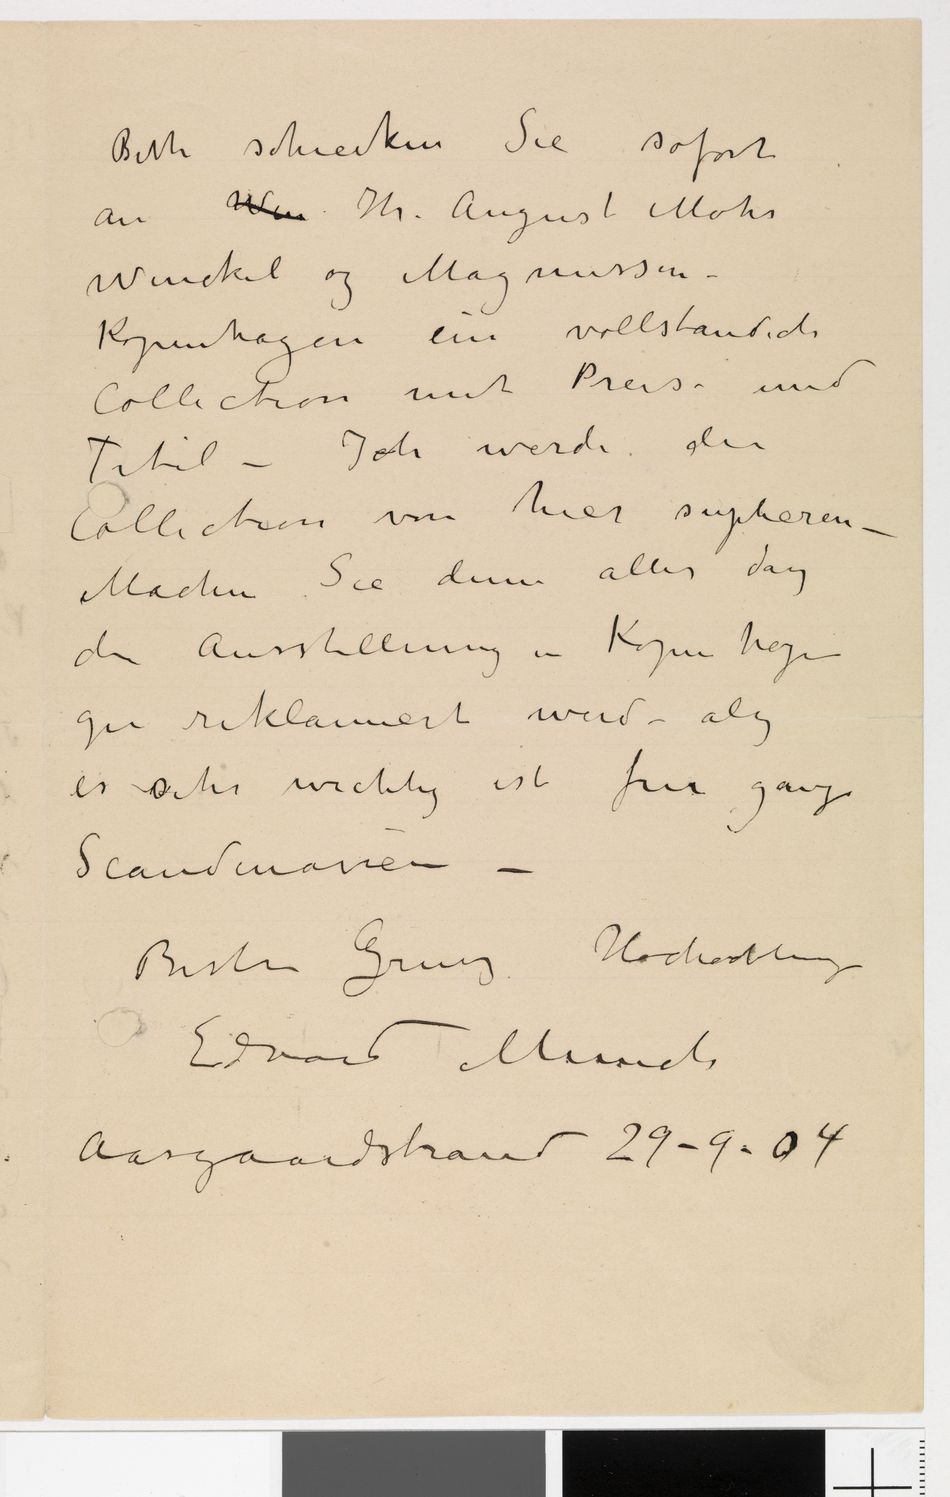 Bitte schiecken Sie sofort
an Win Hr. August Mohr
Winckel og Magnussen –
Kopenhagen ein vollstandich
Collection mit Preis – und
Titel – Ich werde die
Collection von hier supleren –
Machen Sie denn alles das
die Ausstellung in Kopenhagen
gut reklamiert wird – als
es sehr wichtig ist fur ganz
Scandinavien –
Besten Gruss Hochachtung
Edvard Munch
Aasgaardstrand 29 – 9 – 04